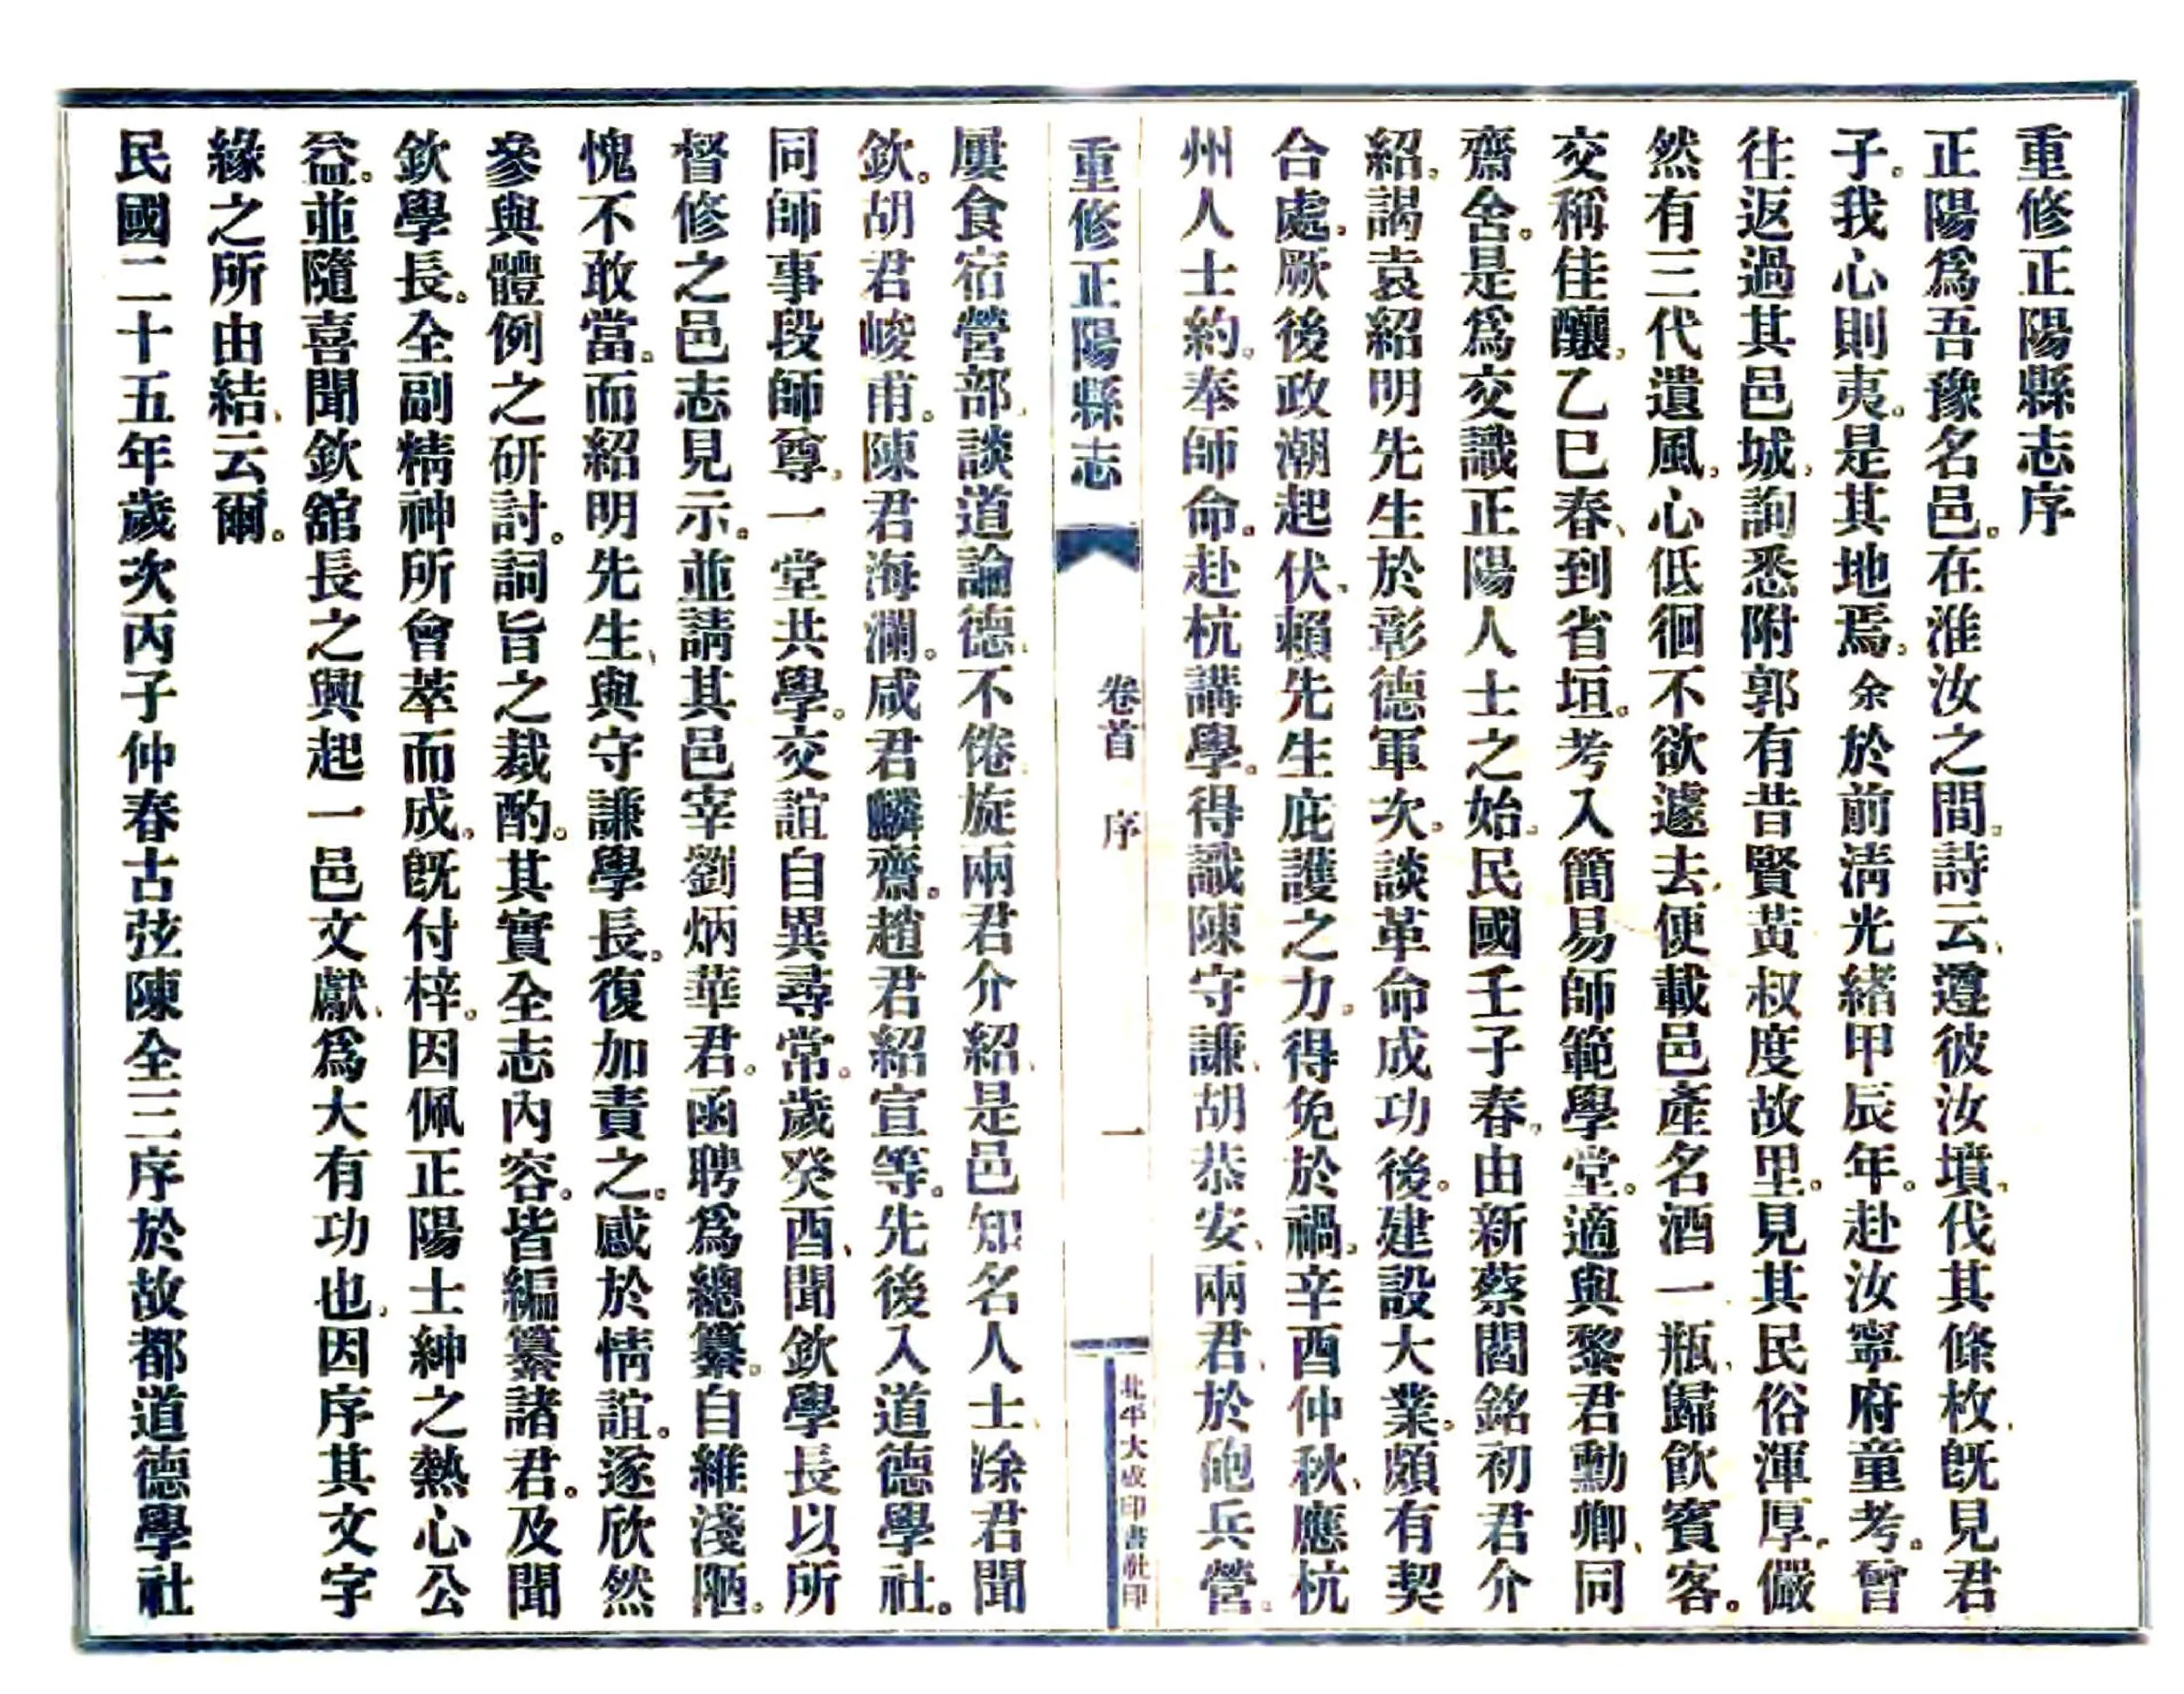 重修正陽縣志序
正陽爲吾豫名邑。在淮汝之間。詩云、遵彼汝墳。伐其條枚、旣見君
子。我心則夷。是其地焉。余於前淸光緒甲辰年。赴汝寧府童考。曾
往返過其邑城、詢悉附郭有昔賢黃叔度故里。見其民俗渾厚。儼
然有三代遺風、心低徊不欲遽去、便載邑產名酒一瓶、歸飮賓客。
交稱佳釀、乙巳春、到省垣。考入簡易師範學堂。適與黎君勳卿、同
齋舍。是爲交識正陽人士之始。民國壬子春、由新蔡閻銘初君介
紹、謁袁紹明先生於彰德軍次。談革命成功後。建設大業。頗有契
合處、厥後政潮起伏、賴先生庇護之力。得免於禍。辛酉仲秋、應杭
州人士約。奉師命。赴杭講學。得識陳守謙、胡恭安、兩君、於砲兵營。
重修正陽縣志
卷首 序
一
北平大成印書社印
屢食宿營部、談道論德、不倦。旋兩君介紹、是邑知名人士、涂君聞
欽。胡君峻甫。陳君海瀾。咸君麟齋。趙君紹宣等。先後入道德學社。
同師事段師尊、一堂共學。交誼自異尋常。歲癸酉、聞欽學長以所
督修之邑志見示。並請其邑宰劉炳華君。函聘爲總纂。自維淺陋。
愧不敢當。而紹明先生、與守謙學長。復加責之。感於情誼。遂欣然
參與體例之研討。詞旨之裁酌。其實全志內容。皆編纂諸君。及聞
欽學長。全副精神所會萃而成。旣付梓。因佩正陽士紳之熱心公
益。並隨喜聞欽舘長之興起一邑文獻、爲大有功也、因序其文字
緣之所由結、云爾。
民國二十五年歲次丙子仲春古弦陳全三序於故都道德學社